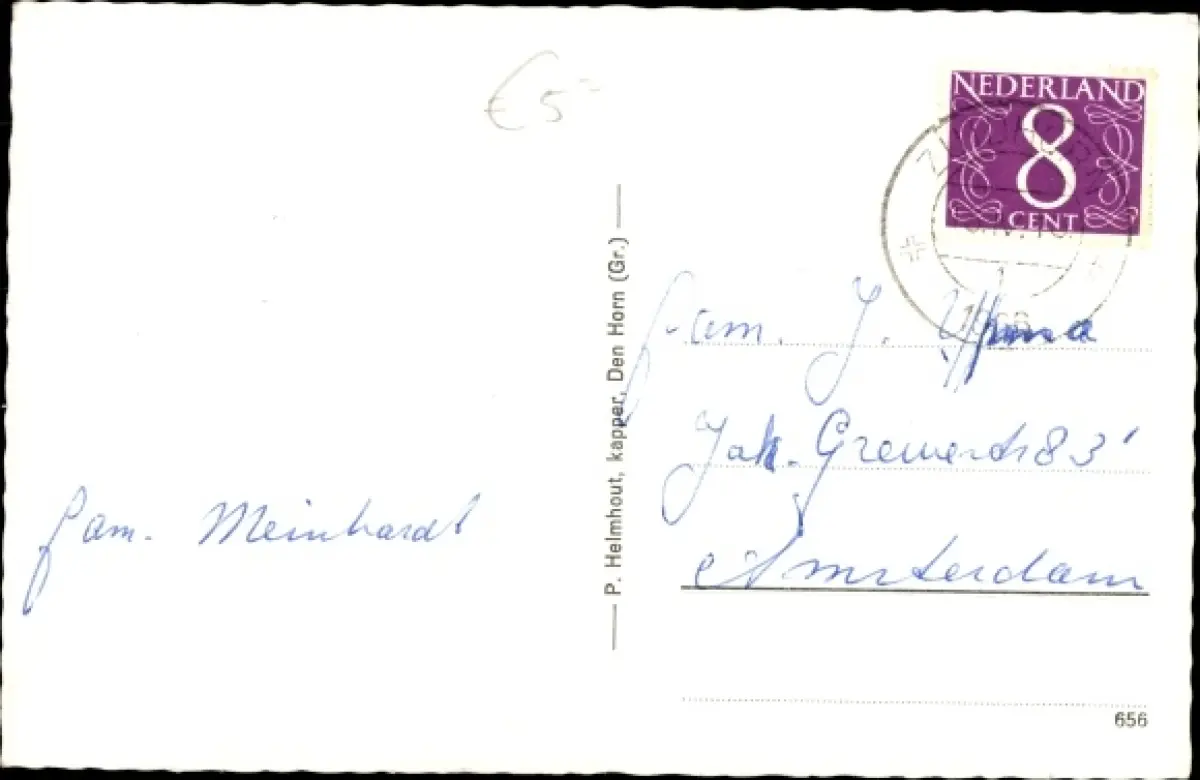 € 5=
NEDERLAND
8
CENT
fam. J.
Jak. 83'
Amsterdam
fam. Meinhardt
P. Helmhout, kapper, Den Horn (Gr.)
656